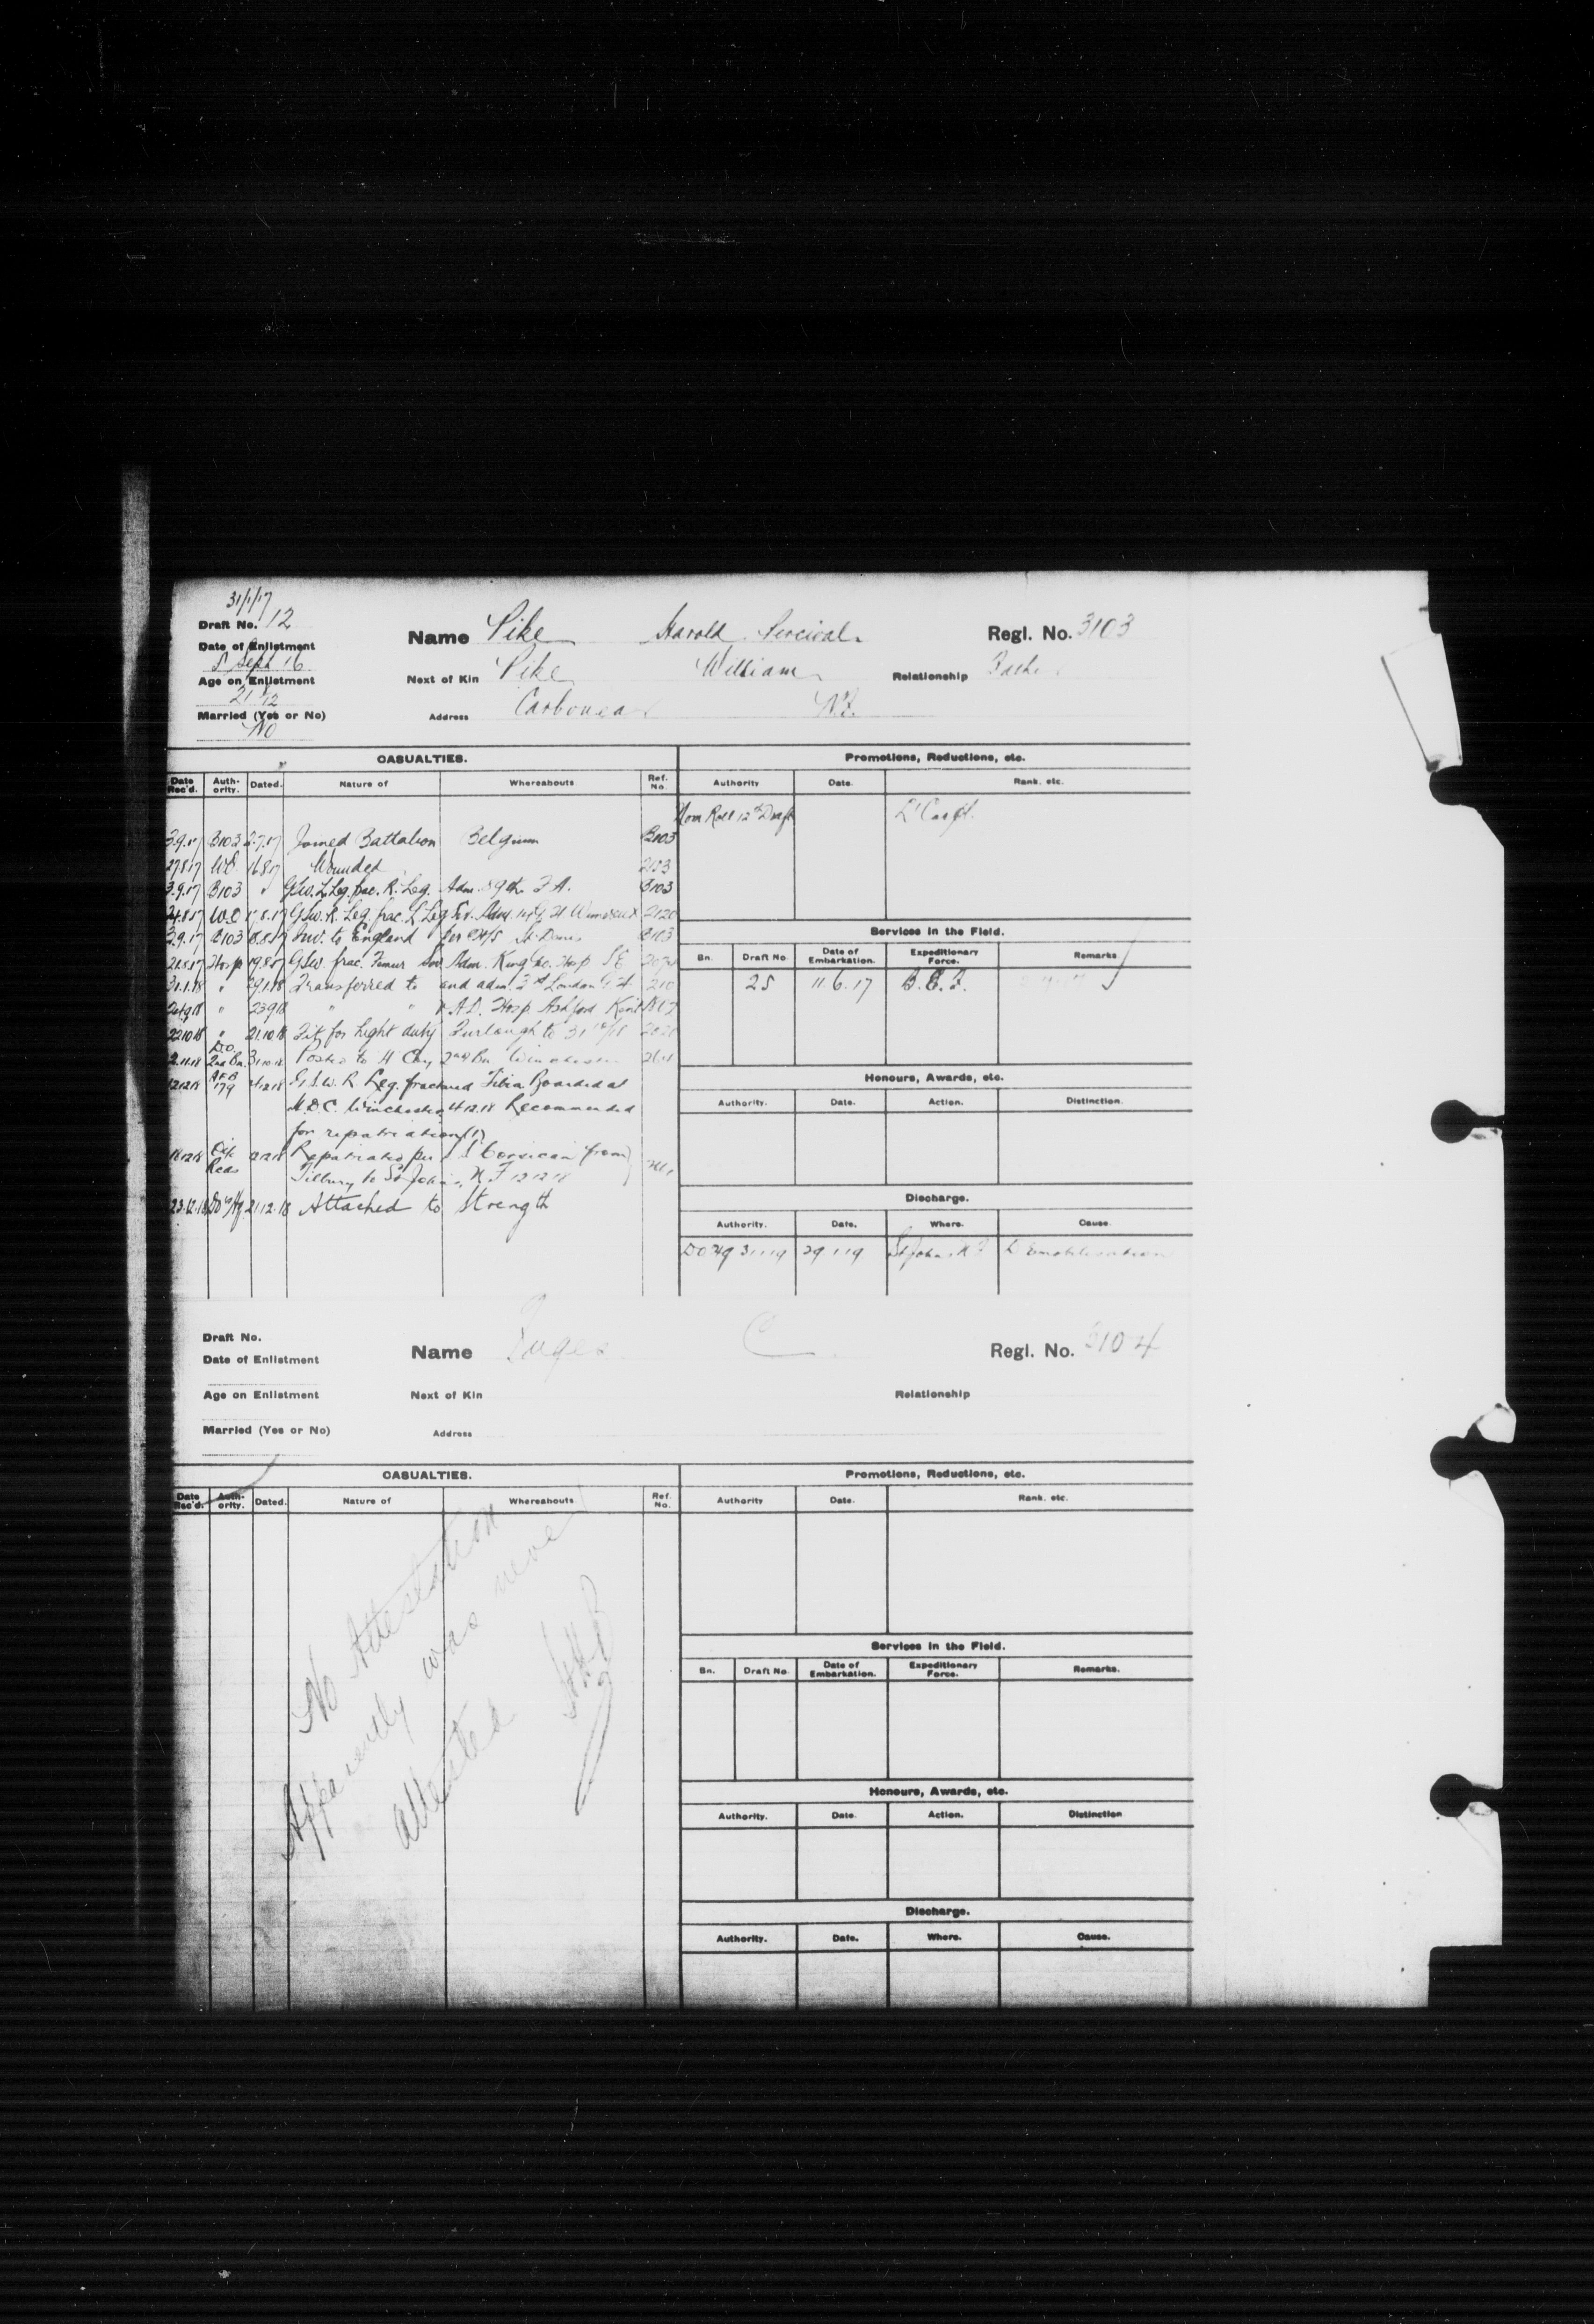 31/1/17
Draft No. 12
Name Pike Harold Percival
Regl. No. 3103
Date of Enlistment
5 Sept 16
Next of Kin Pike William
Relationship Father
Age on Enlistment
21 7/12
Address Carbonear N.F.
Married (Yes or No)
No
CASUALTIES.
Date Rec'd. Auth-ority. Dated. Nature of Whereabouts Ref. No.
3.9.17 B103 2.7.17 Joined Battalion Belgium B103
27.8.17 W.O. 16.8.17 Wounded 2133
3.9.17 B103 " G.S.W. L. Leg. frac. R. Leg. Adm. 89th F.A. B103
24.8.17 W.O 17.8.17 G.S.W. R. Leg. frac. L Leg Sev. Adm. 14 G H Wimereux 2120
3.9.17 B103 18.8.17 Inv. to England per H/S St. Denis B103
21.8.17 Hosp 19.8.17 G.S.W. frac. Femur Sev Adm. King Geo. Hosp S E
31.1.18 " 29.1.18 Transferred to and adm. 3rd London G H. 210
24.9.18 " 23.9.18 " " V.A.D. Hosp Ashford Kent
22.10.18 " 21.10.18 Fit for Light duty Furlough to 31/10/18
2.11.18 D.O. 2nd Bn. 31.10.18 Posted to H Coy 2nd Bn Winchester
12.12.18 A F B 179 4.12.18 G.S.W. R. Leg. fractured Tibia Boarded at
M.D.C. Winchester 4.12.18 Recommended
for repatriation (1)
18.12.18 Off. Recs 12.12.18 Repatriated per S S Corsican from
Tilbury to St Johns, N F 12 12 18
23.12.18 21.12.18 Attached to Strength
Promotions, Reductions, etc.
Authority Date. Rank. etc.
Nom Roll 12th Draft L/Corpl.
Services in the Field.
Bn. Draft No. Date of Embarkation. Expeditionary Force. Remarks.
25 11.6.17 B.E.F.
Honours, Awards, etc.
Authority. Date. Action. Distinction.
Discharge.
Authority. Date. Where. Cause.
29 1 19 St Johns N F Demobilisation
Draft No.
Name C
Regl. No. 3104
Date of Enlistment
Age on Enlistment
Next of Kin
Relationship
Married (Yes or No)
Address
CASUALTIES.
Date Rec'd. Auth-ority. Dated. Nature of Whereabouts Ref. No.
No Attestation
Apparently was never
attested
Promotions, Reductions, etc.
Authority Date. Rank. etc.
Services in the Field.
Bn. Draft No. Date of Embarkation. Expeditionary Force. Remarks.
Honours, Awards, etc.
Authority. Date. Action. Distinction
Discharge.
Authority. Date. Where. Cause.